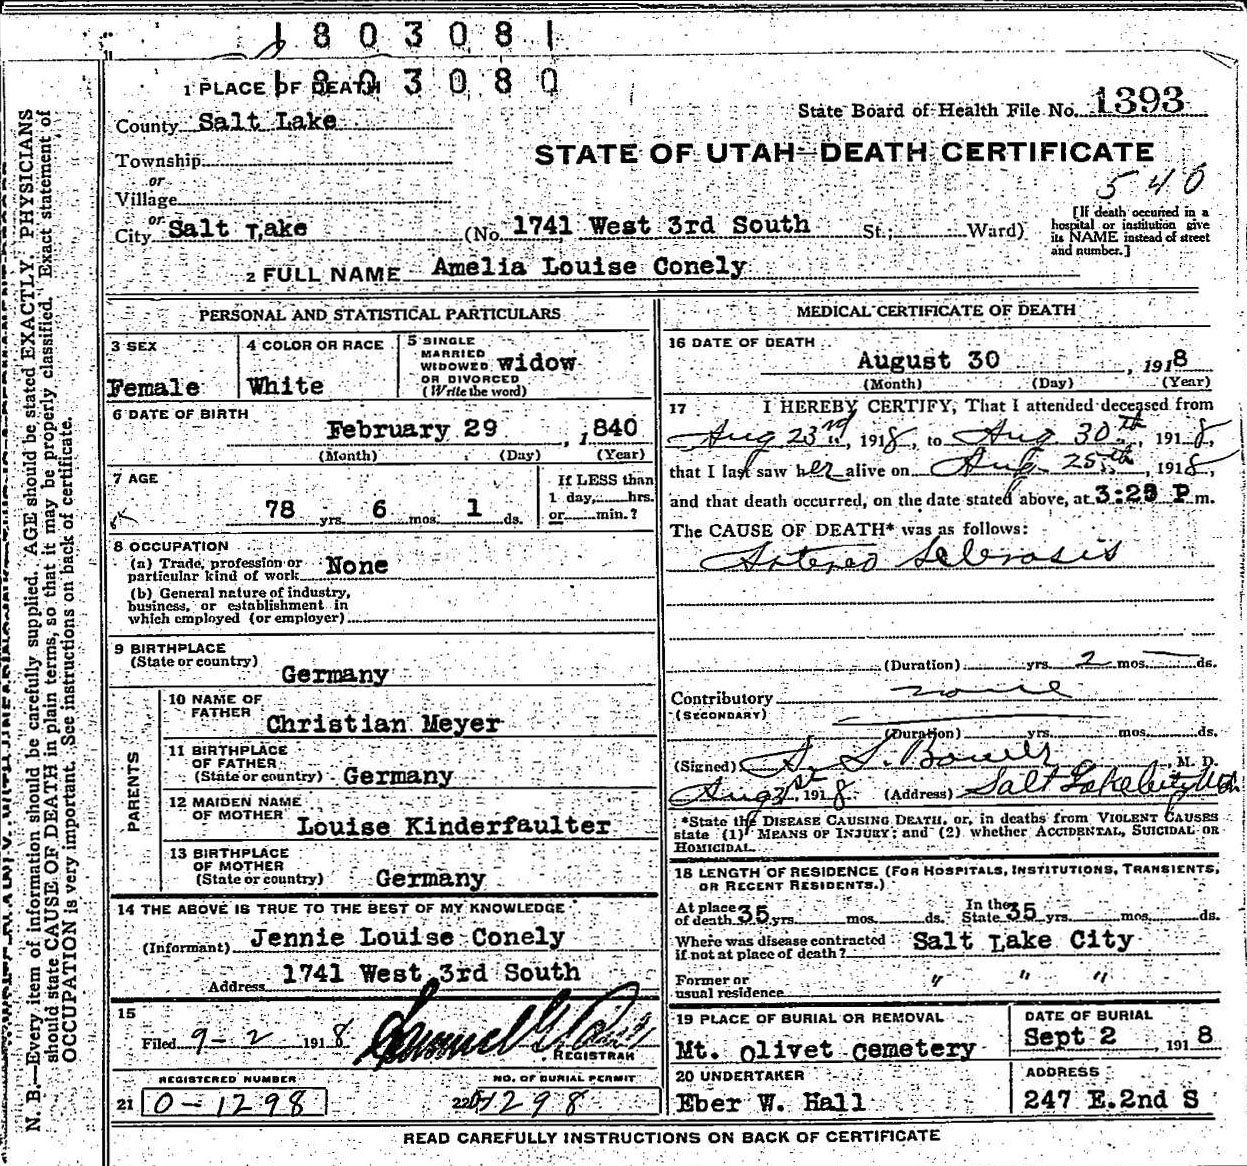 1803081
1803080
1 PLACE OF DEATH
State Board of Health File No. 1393
County Salt Lake
STATE OF UTAH—DEATH CERTIFICATE
Township
or
Village
540
or
City Salt Lake (No. 1741 West 3rd South St.; Ward)
[If death occurred in a hospital or institution give its NAME instead of street and number.]
2 FULL NAME Amelia Louise Conely
PERSONAL AND STATISTICAL PARTICULARS
3 SEX Female
4 COLOR OR RACE White
5 SINGLE MARRIED WIDOWED OR DIVORCED (Write the word) widow
6 DATE OF BIRTH
February 29, 1840
(Month) (Day) (Year)
7 AGE
78 yrs. 6 mos. 1 ds.
If LESS than 1 day, hrs. or min.?
8 OCCUPATION
(a) Trade, profession or particular kind of work None
(b) General nature of industry, business, or establishment in which employed (or employer)
9 BIRTHPLACE
(State or country) Germany
PARENTS
10 NAME OF FATHER Christian Meyer
11 BIRTHPLACE OF FATHER (State or country) Germany
12 MAIDEN NAME OF MOTHER Louise Kinderfaulter
13 BIRTHPLACE OF MOTHER (State or country) Germany
14 THE ABOVE IS TRUE TO THE BEST OF MY KNOWLEDGE
(Informant) Jennie Louise Conely
Address 1741 West 3rd South
15
Filed 9-2 1918 Samuel G. REGISTRAR
REGISTERED NUMBER
21 0-1298
NO. OF BURIAL PERMIT
22 01298
MEDICAL CERTIFICATE OF DEATH
16 DATE OF DEATH
August 30, 1918
(Month) (Day) (Year)
17 I HEREBY CERTIFY, That I attended deceased from
Aug 23rd, 1918, to Aug 30th, 1918,
that I last saw her alive on Aug. 25th, 1918,
and that death occurred, on the date stated above, at P m.
The CAUSE OF DEATH* was as follows:
Arterio Sclerosis
(Duration) yrs. 2 mos. — ds.
Contributory none
(SECONDARY)
(Duration) yrs. mos. ds.
(Signed) S. , M. D.
Aug 31st, 1918 (Address) Salt Lake City Utah
*State the DISEASE CAUSING DEATH, or, in deaths from VIOLENT CAUSES
state (1) MEANS OF INJURY; and (2) whether ACCIDENTAL, SUICIDAL OR
HOMICIDAL.
18 LENGTH OF RESIDENCE (FOR HOSPITALS, INSTITUTIONS, TRANSIENTS,
OR RECENT RESIDENTS.)
At place of death 35 yrs. mos. ds. In the State 35 yrs. mos. ds.
Where was disease contracted if not at place of death? Salt Lake City
Former or usual residence " " "
19 PLACE OF BURIAL OR REMOVAL
Mt. Olivet Cemetery
DATE OF BURIAL
Sept 2, 1918
20 UNDERTAKER
Eber W. Hall
ADDRESS
247 E.2nd S
READ CAREFULLY INSTRUCTIONS ON BACK OF CERTIFICATE
N. B.—Every item of information should be carefully supplied. AGE should be stated EXACTLY. PHYSICIANS
should state CAUSE OF DEATH in plain terms, so that it may be properly classified. Exact statement of
OCCUPATION is very important. See instructions on back of certificate.